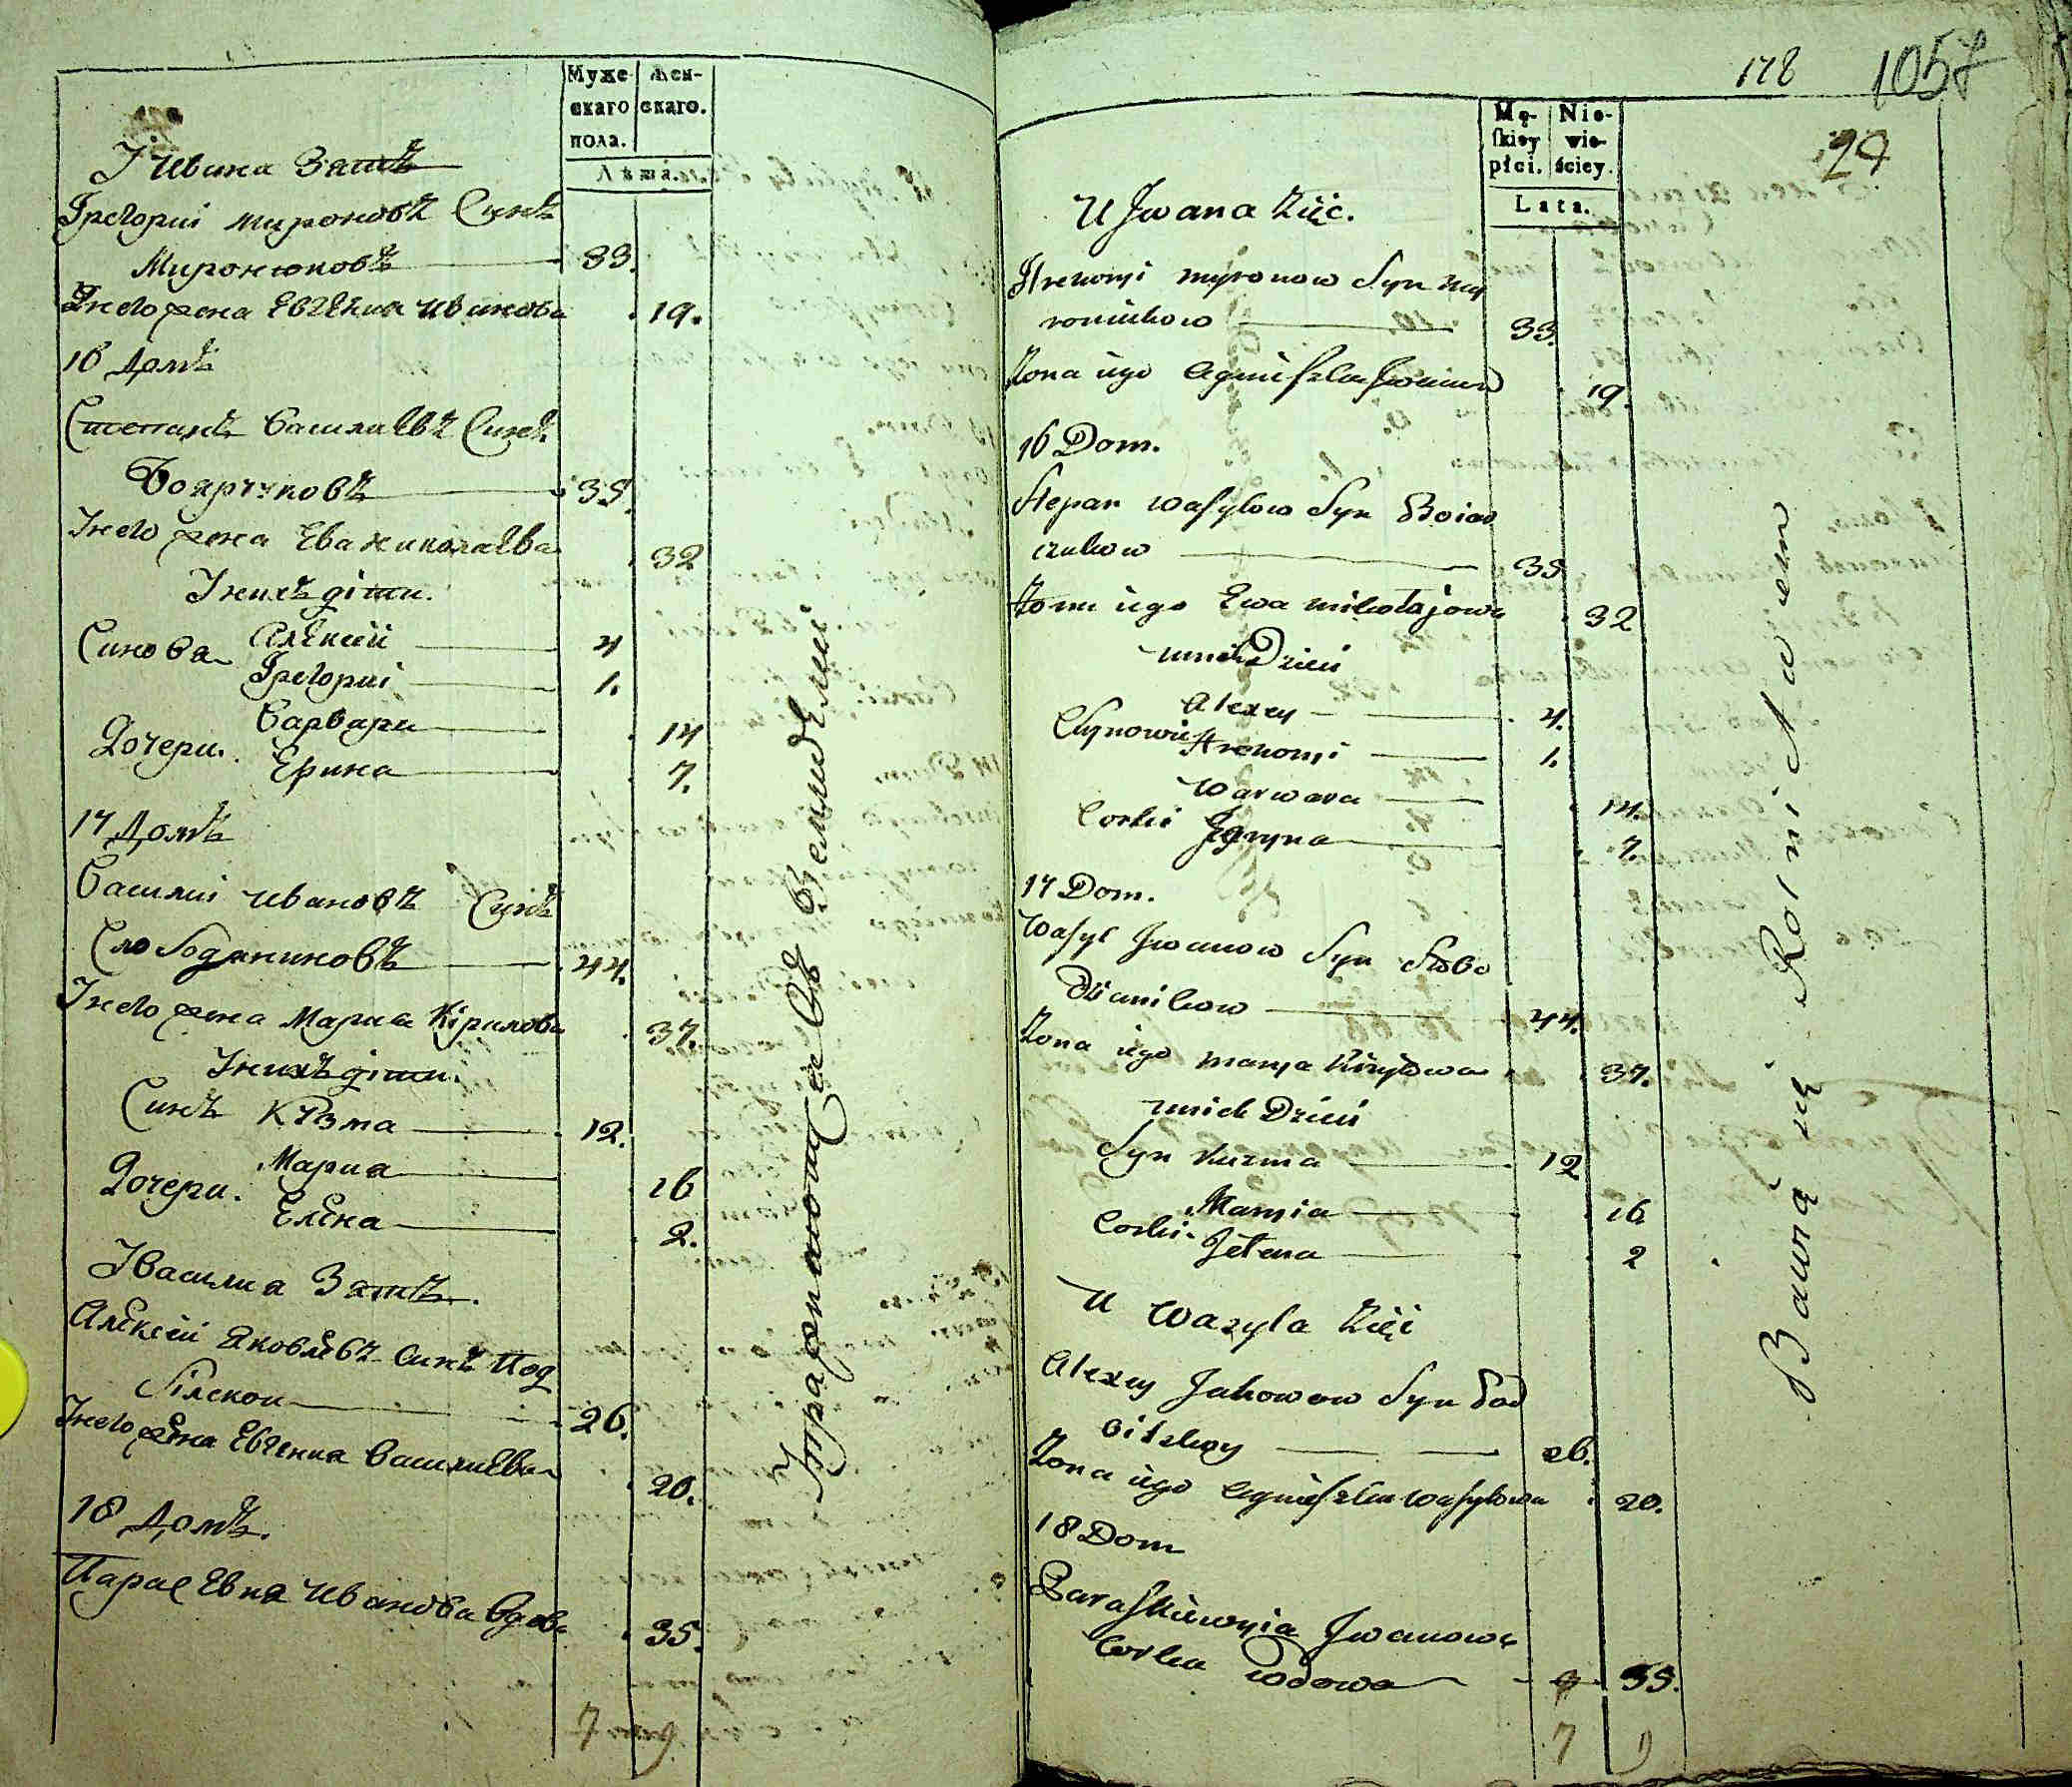 Муже-
скаго
пола.
Жен-
скаго.
Лѣта.
У Ивана Зять
Григорий Мироновъ Синъ
Миронюковъ 33.
У него жена Евгения Иванова 19.
16 Домъ
Степанъ Василиевъ Синъ
Боярчуковъ 35.
У него жена Ева Николаева 32
У нихъ діти.
Синова Алексий 4
Григорий 1.
Дочери. Варвара 14
Ерина 7.
17 Домъ
Василий Ивановъ Синъ
Слободяниковъ 44.
У него жена Мария Кірилова 37.
У нихъ діти.
Синъ Кузма 12.
Дочери. Мария 16
Елена 2.
У Василиа Зять.
Алексий Яковлевъ Синъ Под
білской 26.
У него жена Евгения Василиева 20.
18 Домъ.
Параcевиа Иванова Вдова 35.
7 9
Упражняются въ Земледелии
178 1057
29
Mę-
skiey
płci.
Nie-
wie-
ściey.
Lata.
U Jwana Zięć.
Hrehory Myronow Syn My
roniukow 33.
Żona iego Agnieszka Jwanowa 19.
16 Dom.
Stepan Wasylow Syn Boiar
czukow 35
Żona iego Ewa Mikołajowa 32
u nich Dzieci
Synowie Alexey 4.
Hrehory 1.
Corki Warwara 14.
Jaryna 7.
17 Dom.
Wasyl Jwanow Syn Słobo
dzianikow 44.
Żona iego Marya Kiryłowa 37.
u nich Dzieci
Syn Kuzma 12
Corki. Maryia 16
Jełena 2
U Wasyla Zięć
Alexey Jakowow Syn Pod
bilskoy 26.
Żona iego Agnieszka Wasylowa 20.
18 Dom
Paraskiewyia Jwanowa
Corka Wdowa 35.
7 9
Bawią się Rolnictwem